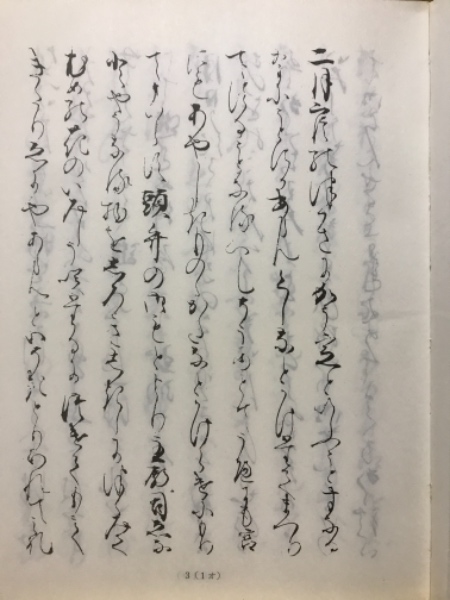 二月官のつかさにかう定といふことすなる
なにことにかあらんくしなとかけたてまつり
てすることなるへしそうめとてうへにも宮
にもあやしきものゝかたなとかはらけにもり
てまいらす頭弁の御もとより主殿司ゑな
とやうなる物をしろきしきしにつゝみて
むめの花のいみしうさきたるにつけてもて
きたりゑにやあらんといそきとりいれてみれ
3（1オ）